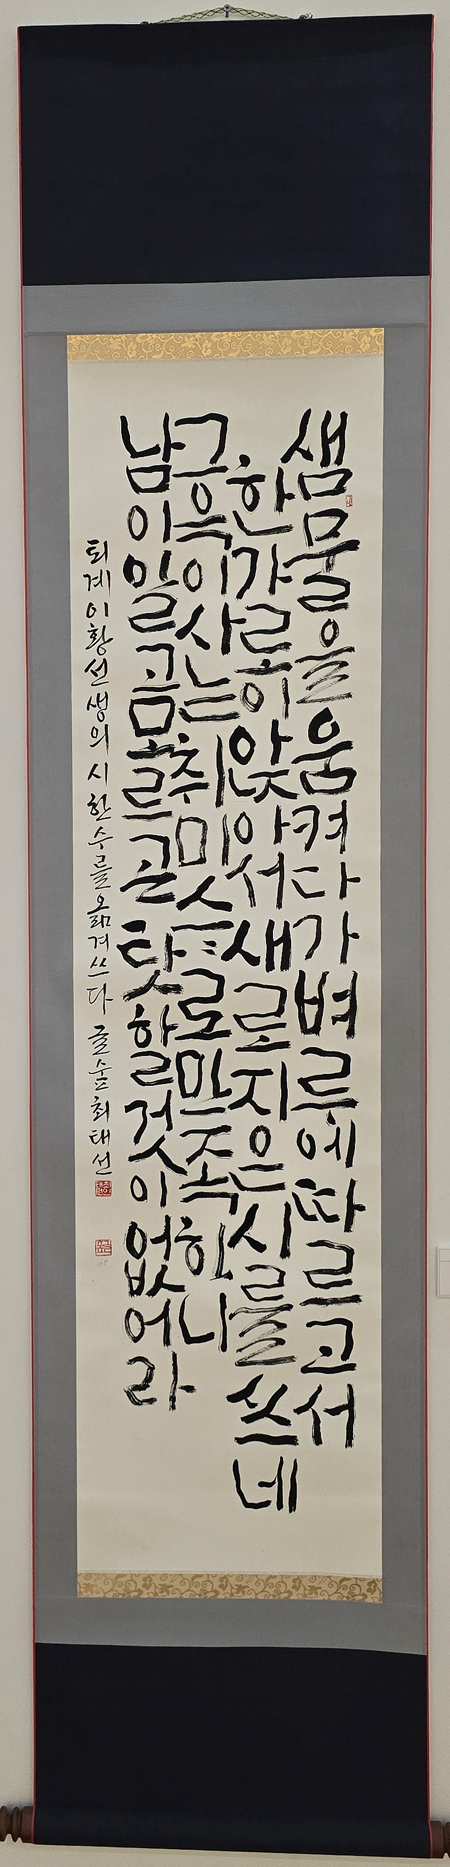 샘물을움켜다가벼루에따르고서
한가로히앉아서새로지은시를쓰네
그윽이사는취미스스로만족하니
남이알곰모르곤탓할것이없어라
퇴계이황선생의시한수를옮겨쓰다 글숲최태선